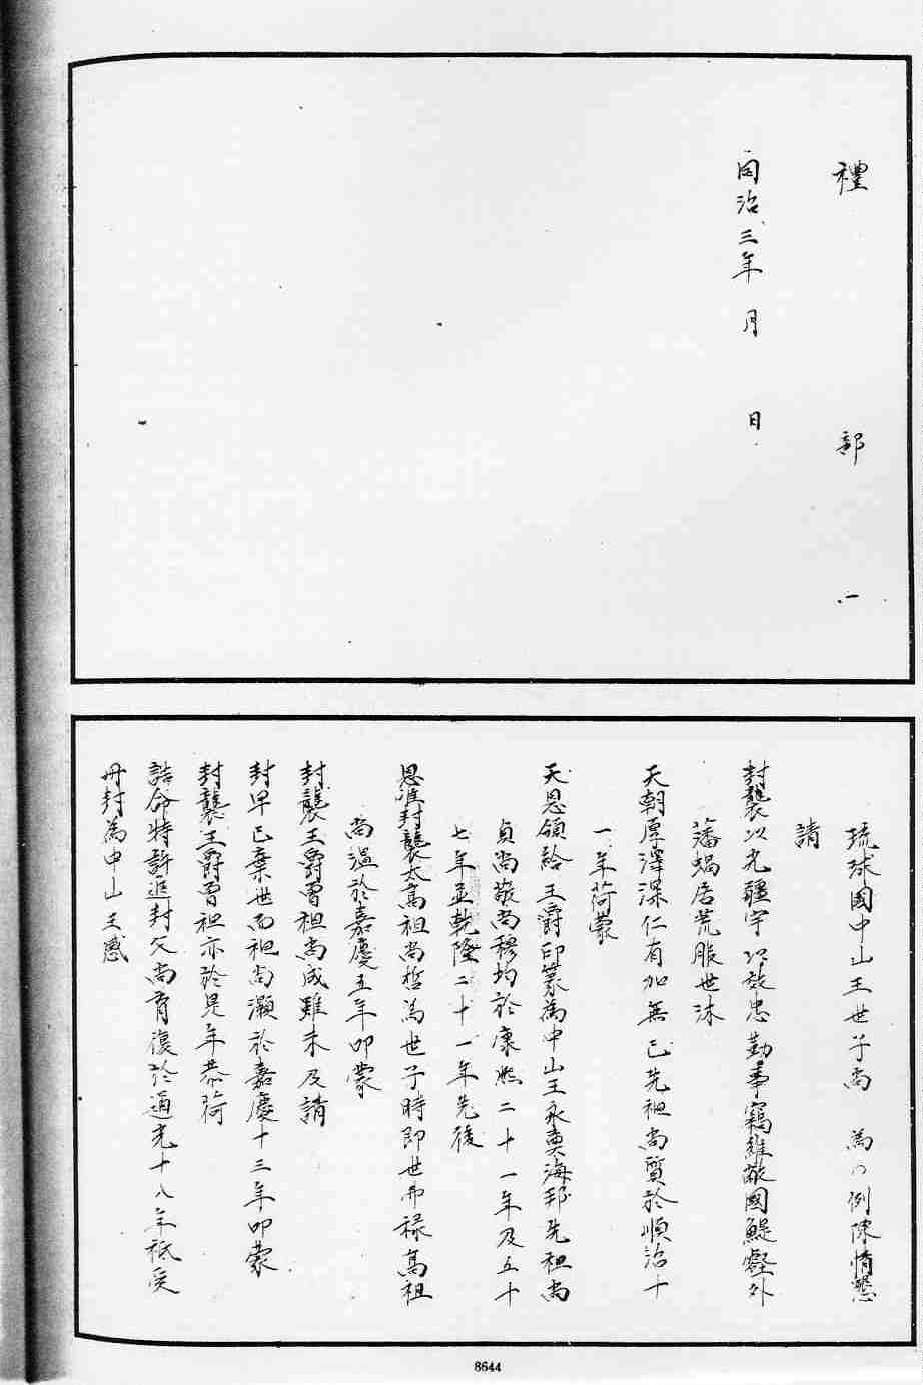 禮 部 一
同治三年 月 日
琉球國中山王世子尚 為 例陳情懇
請
封襲以光疆宇以效忠勤事竊維敝國鯷壑外
藩蝸居荒服世沐
天朝厚澤深仁有加無已先祖尚質於順治十
一年荷蒙
天恩頒給王爵印篆為中山王永奠海邦先祖尚
貞尚敬尚穆均於康熙二十一年及五十
七年並乾隆二十一年先後
恩準封襲太高祖尚哲為世子時即世弗祿高祖
尚溫於嘉慶五年叩蒙
封襲王爵曾祖尚成雖未及請
封早已棄世而祖尚灝於嘉慶十三年叩蒙
封襲王爵曾祖亦於是年恭荷
誥命特許追封父尚育復於道光十八年祗受
冊封為中山王感
8644